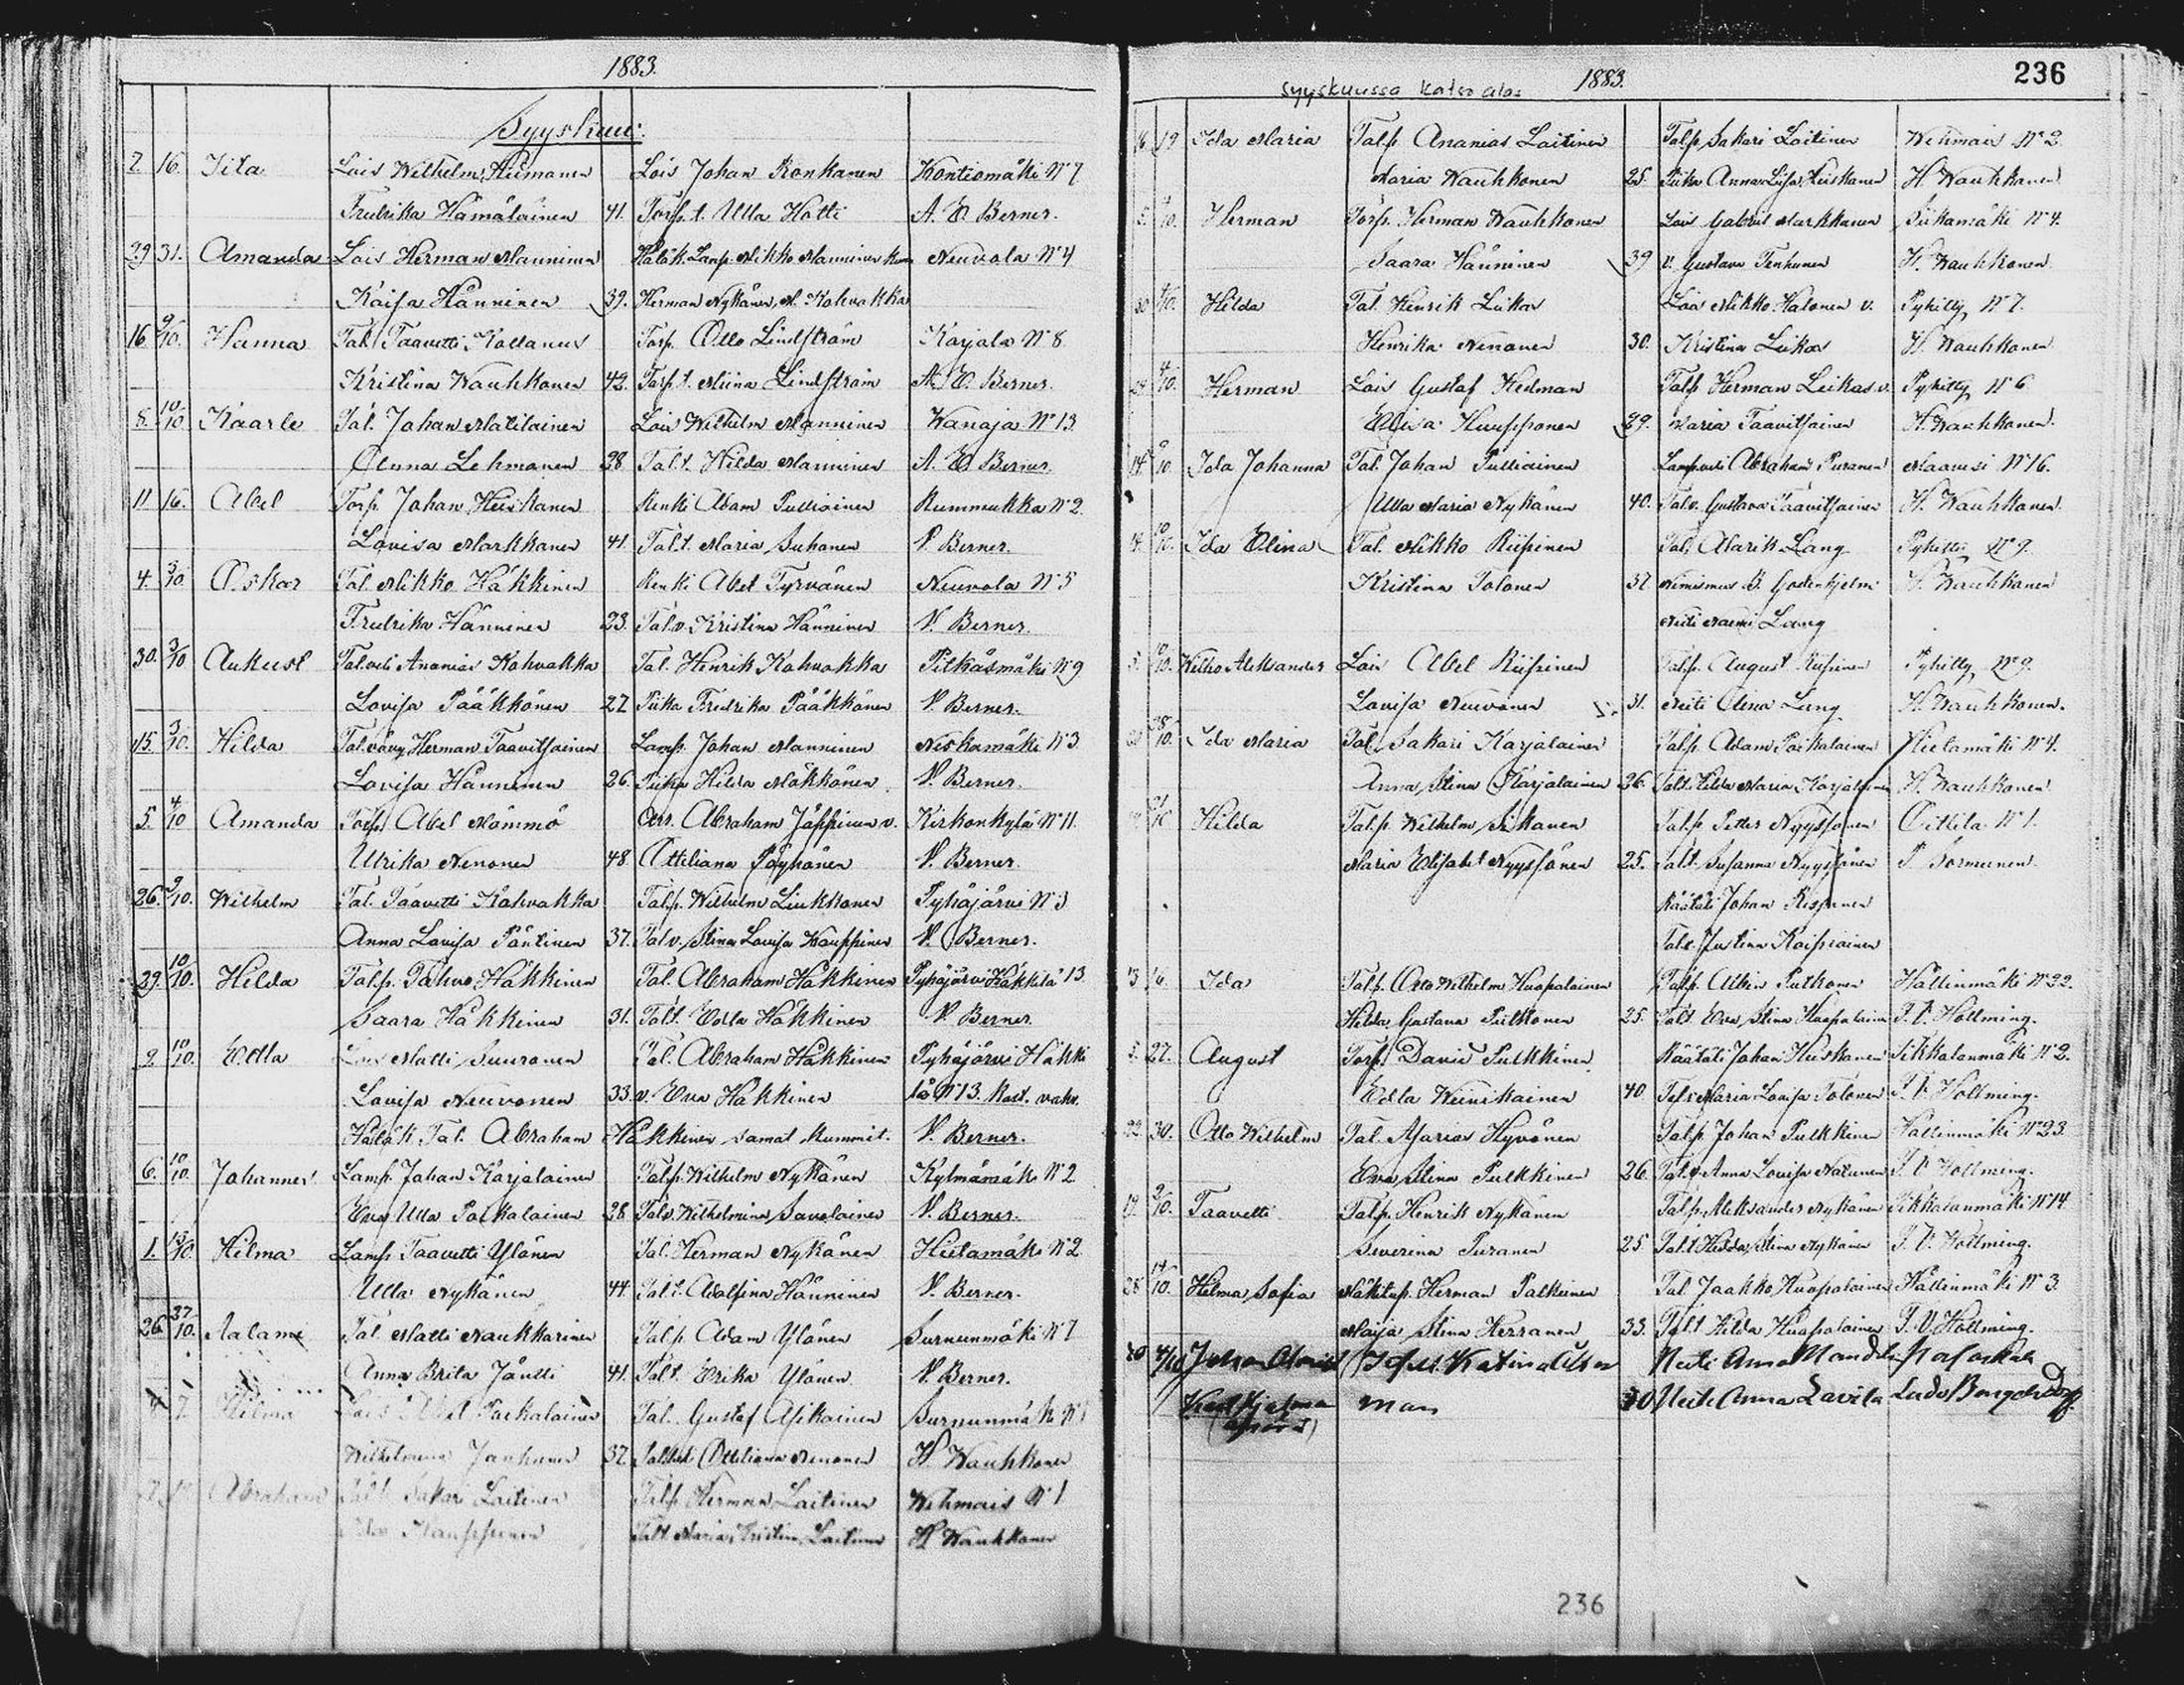 1883.
Syyskuu.
2. 16. Iita Lois Wilhelm Hiimanen Lois Johan Ronkanen Kontiomäki N:o 7
Fredrika Hämäläinen 41. Torp. t. Ulla Hatti A. E. Berner.
29 31. Amanda Lois Herman Manninen Hätäk. Lamp. Mikko Manninen Neuvola N:o 4
Kaisa Hänninen 39. Herman Nykänen, M. Kohvakka
16. 9/10. Hanna Tal. Taavetti Kollanus Torp. Otto Lindström Karjala N:o 8
Kristina Wauhkonen 42. Torp. t. Miina Lindström A. E. Berner.
8. 10/10 Kaarle Tal. Johan Matilainen Lois Wilhelm Manninen Wanaja N:o 13
Lehmanen 28 Tal. t. Hilda Manninen A. E. Berner.
11 16. Abel Torp. Johan Heiskanen Renki Adam Pulliainen Rummukka N:o 2.
Lovisa Markkanen 41. Tal. t. Maria Suhonen V. Berner.
4. 3/10 Oskar Tal. Mikko Häkkinen Renki Abel Tyrvänen Neuvola N:o 5
Fredrika Hänninen 23. Tal. v. Kristina Hänninen V. Berner.
30. 3/10 Aukust Tal. veli Ananias Kohvakka Tal. Henrik Kohvakka Pitkäsmäki N:o 9
Lovisa Pääkkönen 27 Piika Fredrika Pääkkönen V. Berner.
15. 3/10. Hilda Tal. vävy Herman Taavitsainen Lamp. Johan Manninen Niskamäki N:o 3
Lovisa Hänninen 26. Piika Hilda Mäkkönen V. Berner.
5. 4/10 Amanda Torp. Abel Mömmö Abraham Jäppinen v. Kirkonkylä N:o 11.
Ulrika Nenonen 48. Attiliana Pöyhönen V. Berner.
26. 9/10. Wilhelm Tal. Paavetti Kohvakka Talp. Wilhelm Liukkonen Pyhäjärvi N:o 3
Anna Lovisa Päntinen 37. Tal v. Stina Lovisa Kauppinen V. Berner.
29. 10/10. Hilda Talp. Pahvo Häkkinen Tal. Abraham Häkkinen Pyhäjärvi Häkkilä 13
Saara Häkkinen 31. Tal t. Edla Häkkinen V. Berner.
2. 10/10. Edla Lois Matti Suuronen Tal. Abraham Häkkinen Pyhäjärvi Häkki
Lovisa Neuvonen 33. v. Eva Häkkinen lä N:o 13. Kast. vahv.
Hätäk. Tal. Abraham Häkkinen samat kummit. V. Berner.
6. 10/10. Johannes Lamp. Johan Karjalainen Talp. Wilhelm Nykänen Kylmämäki N:o 2
Eva Ulla Paikalainen 28 Talv. Wilhelmina Savolainen V. Berner.
1. 15/10. Hilma Lamp. Taavetti Ylönen Tal. Herman Nykänen Hietamäki N:o 2
Ulla Nykänen 44. Tal t. Adolfina Hänninen V. Berner.
26. 27/10. Aalame Tal. Matti Naukkarinen Talp. Adam Ylönen Surnunmäki N:o 7
Anna Brita Jäntti 41. Tal t. Erika Ylönen V. Berner.
7. Hilma Lois Abel Paikalainen Tal. Gustaf Asikainen Surnunmäki N:o 1
Wilhelmina Janhunen 32. Ottiliana Nenonen H. Wauhkonen
Abraham Tal. Sakari Laitinen Talp. Herman Laitinen Wehmais N:o 1
Kauppinen Talt. Maria Kristina Laitinen H. Wauhkonen
syyskuussa katso alas 1883. 236
16 19 Ida Maria Talp. Ananias Laitinen Talp. Sakari Laitinen Wehmais N:o 2
Maria Wauhkonen 25. Piika Anna Liisa Heiskanen H. Wauhkonen
5. /10. Herman Torp. Herman Wauhkonen Lois Gabriel Markkanen Siikamäki N:o 4.
Saara Hänninen 39 v. Gustava Tenhunen H. Wauhkonen
30 /10. Hilda Tal. Henrik Leikas Lois Mikko Halonen v. Pyhitty N:o 7.
Henrika Nenonen 30. Kristina Leikas H. Wauhkonen
/10. Herman Lois Gustaf Hedman Talp Herman Leikas v. Pyhitty N:o 6
Elisa Huupponen 29. Maria Taavitsainen H. Wauhkonen.
14. 9/10. Ida Johanna Tal. Johan Pulliainen Lamp. veli Abraham Puranen Maavesi N:o 16.
Ulla Maria Nykänen 40. Tal.v. Gustava Taavitsainen H. Wauhkonen.
14. 10/10. Ida Elina Tal. Mikko Riipinen Tal. Alarik Lang Pyhitti N:o 9.
Kristina Tolonen 37. Nimismies B. Godenhjelm H. Wauhkonen
Neiti Naemi Lang
5. 10/10. Wilho Aleksander Lois Abel Riipinen Talp. August Riipinen Pyhitty N:o 9.
Lovisa Neuvonen 31. Neiti Elina Lang H. Wauhkonen.
28/10. Ida Maria Tal. Sakari Karjalainen Talp. Adam Paikalainen Hietamäki N:o 4.
Anna Stina Karjalainen 26. Talt. Hilda Maria Karjalainen H. Wauhkonen
Hilda Talp. Wilhelm Sikanen Talp. Petter Nyyssönen Oittila N:o 1.
Maria Elisabet Nyyssönen 25. Talt. Susanna Nyyssönen P. Sormunen
Räätäli Johan Reponen
Talv. Justina Kaipiainen
13 16. Ida Talp. Otto Wilhelm Huopalainen Talp. Albin Putkonen Hällinmäki N:o 22.
Hilda Gustava Piilkonen 25. Tal t. Eva Stina Huopalainen J. V. Hollming.
5. 27. August Torp. David Pulkkinen Räätäli Johan Heiskanen Tikkalanmäki N:o 2.
Edla Weinikainen 40. Maria Lovisa Tolonen J. V. Hollming.
22 30. Otto Wilhelm Tal. Asarias Hyvönen Talp. Johan Pulkkinen Hällinmäki N:o 23.
Eva Stina Pulkkinen 26. Tal.v. Anna Lovisa Natunen J. V. Hollming.
19. 2/10. Taavetti Talp. Henrik Nykänen Talp. Aleksander Nykänen Tikkalanmäki N:o 14
Severina Puranen 25 Tal.t Hedda Stina Nykänen J. V. Hollming.
28 14/10. Hilma Sofia Mäkitup. Herman Palkinen Tal Jaakko Huopalainen Hällinmäki N:o 3.
Maija Stina Herranen 33. Tal.t Hilda Huopalainen J. V. Hollming.
30 Neiti Anna Lavila
236